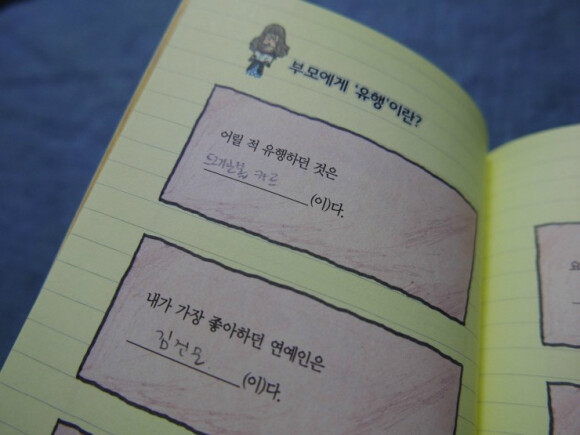 부모에게 '유행'이란?
어릴 적 유행하던 것은
(이)다.
내가 가장 좋아하던 연예인은
김건모
(이)다.